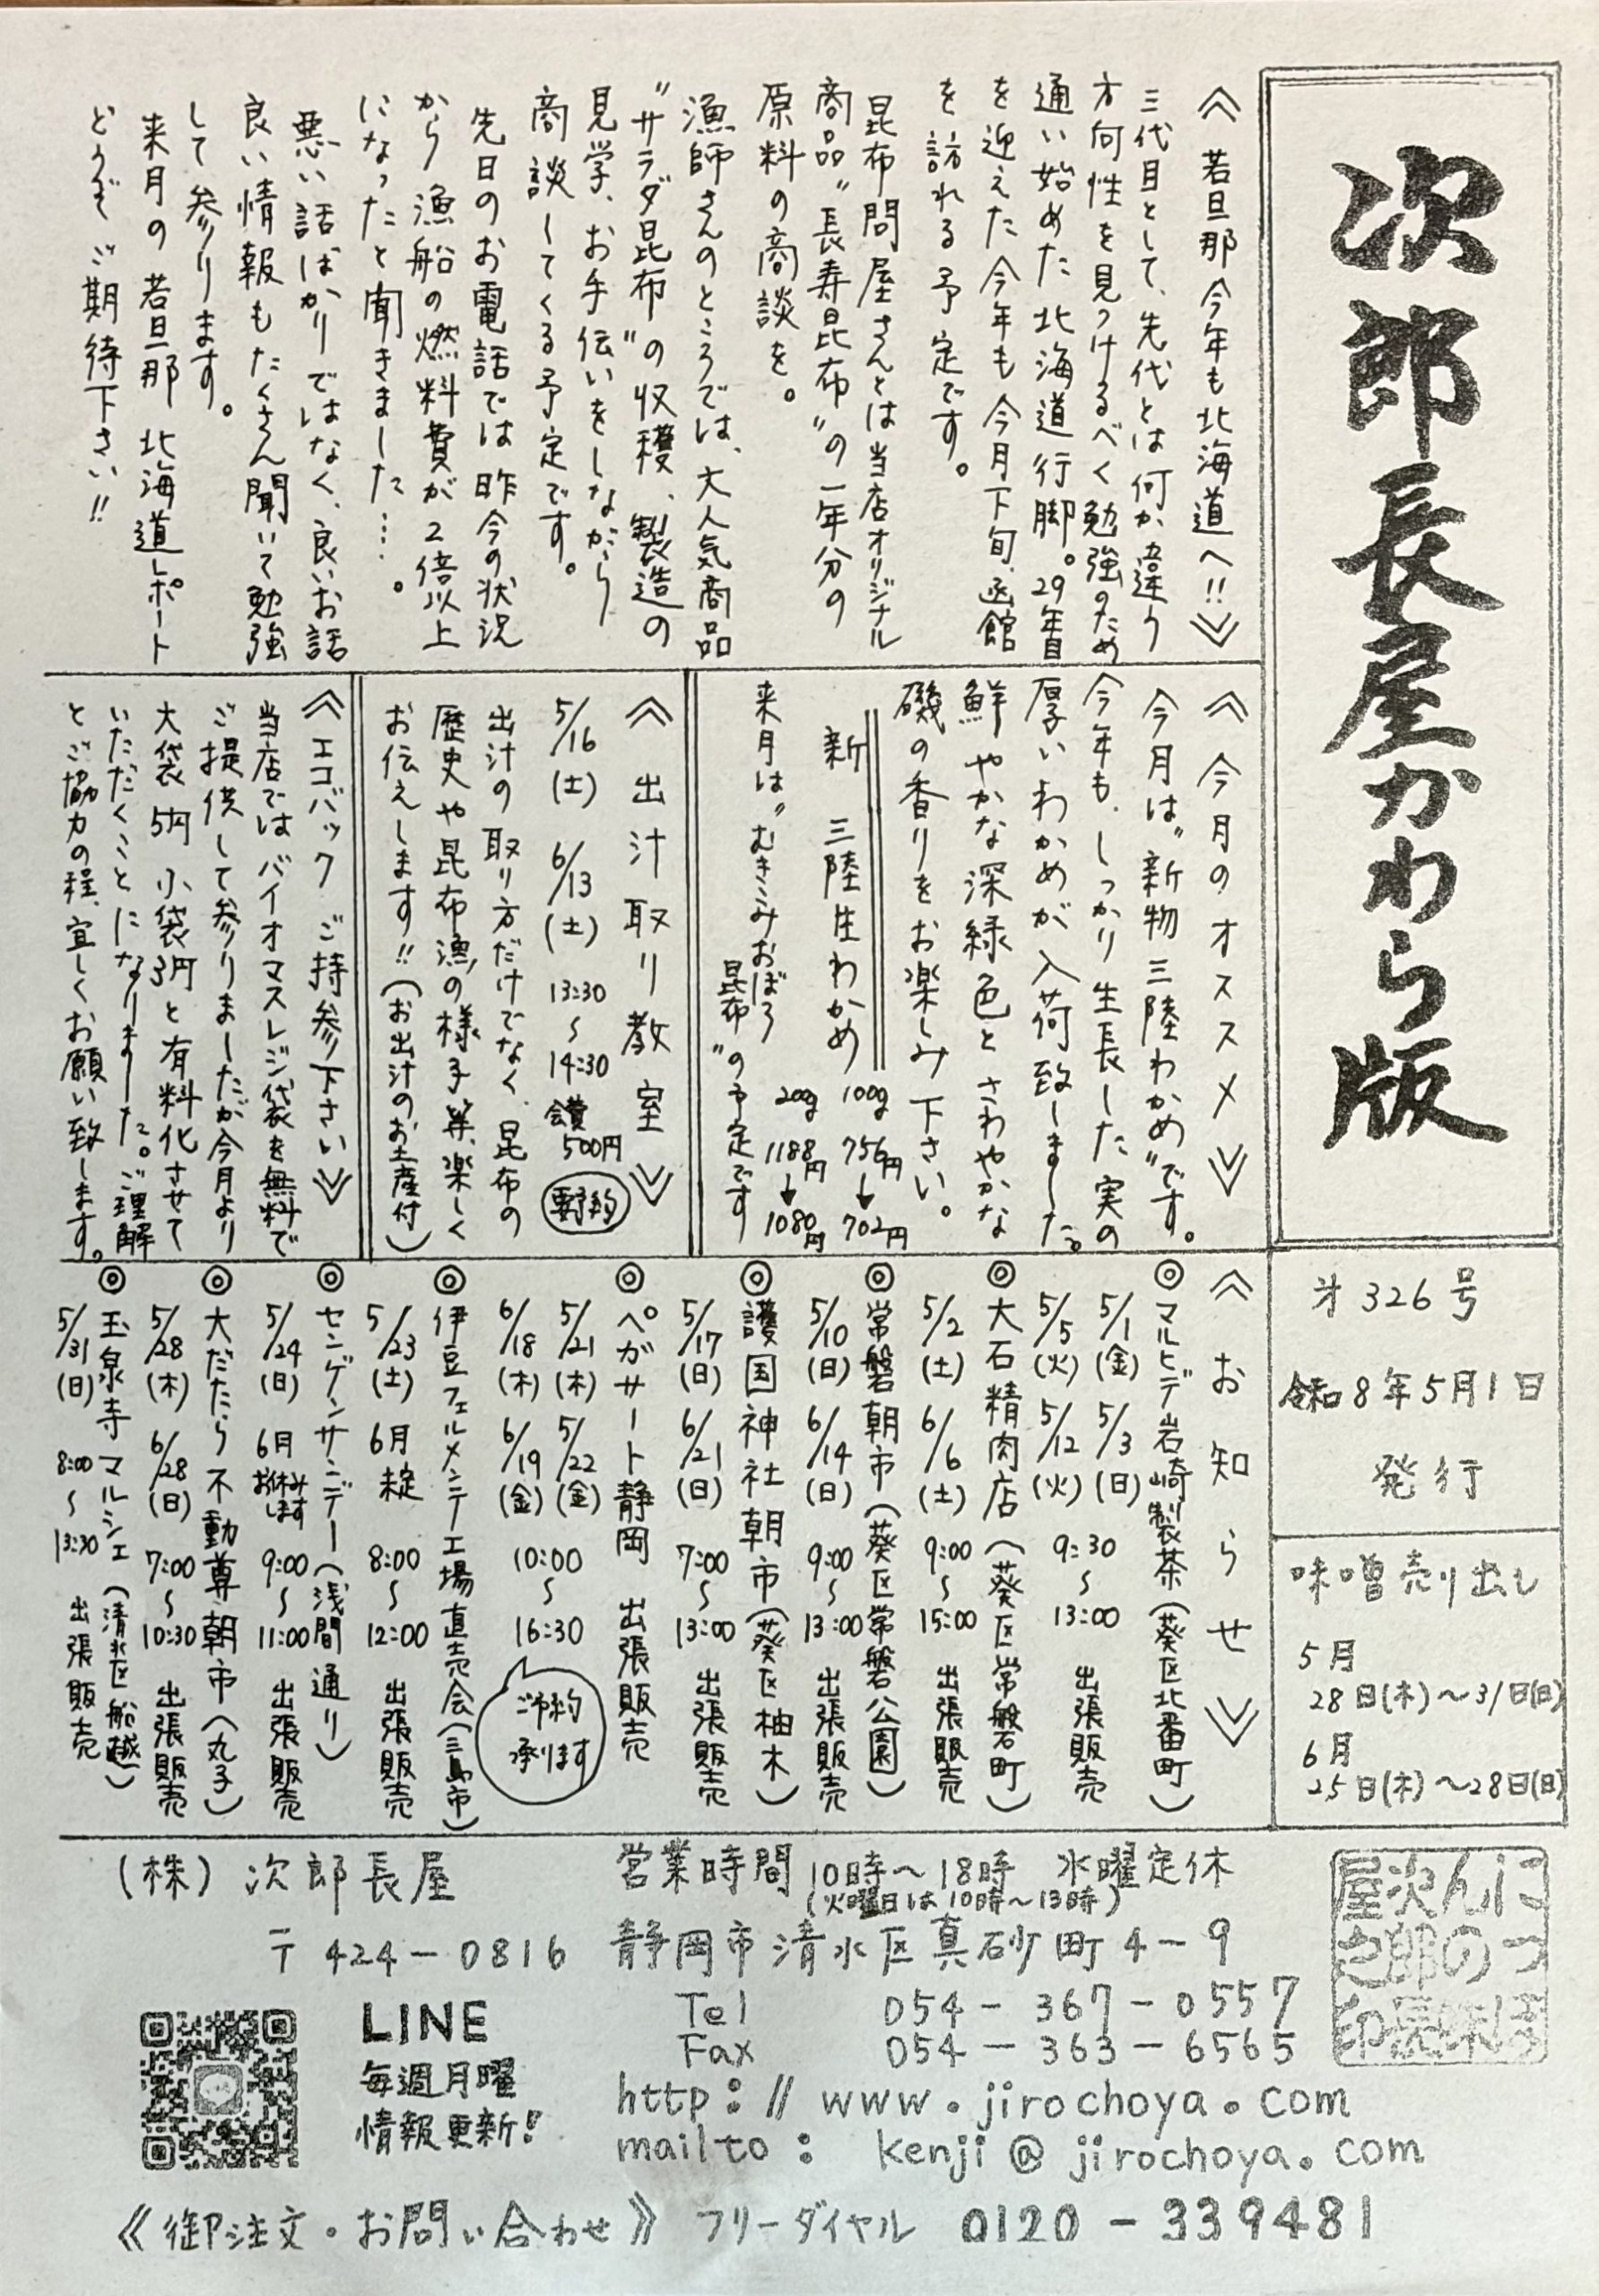 次郎長屋かわら版
才326号
令和8年5月1日
発行
味噌売り出し
5月
28日(木)〜31日(日)
6月
25日(木)〜28日(日)
≪若旦那今年も北海道へ!!≫
三代目として、先代とは何か違う
方向性を見つけるべく勉強のため
通い始めた北海道行脚。29年目
を迎えた今年も今月下旬、函館
を訪れる予定です。
昆布問屋さんとは当店オリジナル
商品〝長寿昆布〟の一年分の
原料の商談を。
漁師さんのところでは、大人気商品
〝サラダ昆布〟の収穫、製造の
見学、お手伝いをしながら
商談してくる予定です。
先日のお電話では昨今の状況
から漁船の燃料費が2倍以上
になったと聞きました…。
悪い話ばかりではなく、良いお話
良い情報もたくさん聞いて勉強
して参ります。
来月の若旦那北海道レポート
どうぞご期待下さい!!
≪今月のオススメ≫
今月は〝新物三陸わかめ〟です。
今年も、しっかり生長した実の
厚いわかめが入荷致しました。
鮮やかな深緑色とさわやかな
磯の香りをお楽しみ下さい。
新 三陸生わかめ
100g 756円→702円
200g 1188円→1080円
来月は〝むきこみおぼろ
昆布〟の予定です
≪出汁取り教室≫
5/16(土) 6/13(土) 13:30〜14:30 会費500円 要予約
出汁の取り方だけでなく、昆布の
歴史や昆布漁の様子等、楽しく
お伝えします!!(お出汁のお土産付)
≪エコバックご持参下さい≫
当店ではバイオマスレジ袋を無料で
ご提供して参りましたが今月より
大袋5円 小袋3円と有料化させて
いただくことになりました。ご理解
とご協力の程、宜しくお願い致します。
≪お知らせ≫
◎マルヒデ岩崎製茶(葵区北番町)
5/1(金) 5/3(日)
5/5(火) 5/12(火) 9:30〜13:00 出張販売
◎大石精肉店(葵区常磐町)
5/2(土) 6/6(土) 9:00〜15:00 出張販売
◎常磐朝市(葵区常磐公園)
5/10(日) 6/14(日) 9:00〜13:00 出張販売
◎護国神社朝市(葵区柚木)
5/17(日) 6/21(日) 7:00〜13:00 出張販売
◎ペガサート静岡 出張販売
5/21(木) 5/22(金)
6/18(木) 6/19(金) 10:00〜16:30
ご予約
承ります
◎伊豆フェルメンテ工場直売会(三島市)
5/23(土) 6月未定 8:00〜12:00 出張販売
◎センゲンサンデー(浅間通り)
5/24(日) 6月お休みします 9:00〜11:00 出張販売
◎大だたら不動尊朝市(丸子)
5/28(木) 6/28(日) 7:00〜10:30 出張販売
◎玉泉寺マルシェ(清水区船越)
5/31(日) 8:00〜13:30 出張販売
(株)次郎長屋
営業時間 10時〜18時 水曜定休
(火曜日は10時〜13時)
〒424-0816 静岡市清水区真砂町4-9
Tel 054-367-0557
Fax 054-363-6565
http://www.jirochoya.com
mailto: kenji@jirochoya.com
LINE
毎週月曜
情報更新!
にっぽんの味次郎長屋之印
≪御注文・お問い合わせ≫ フリーダイヤル 0120-339481